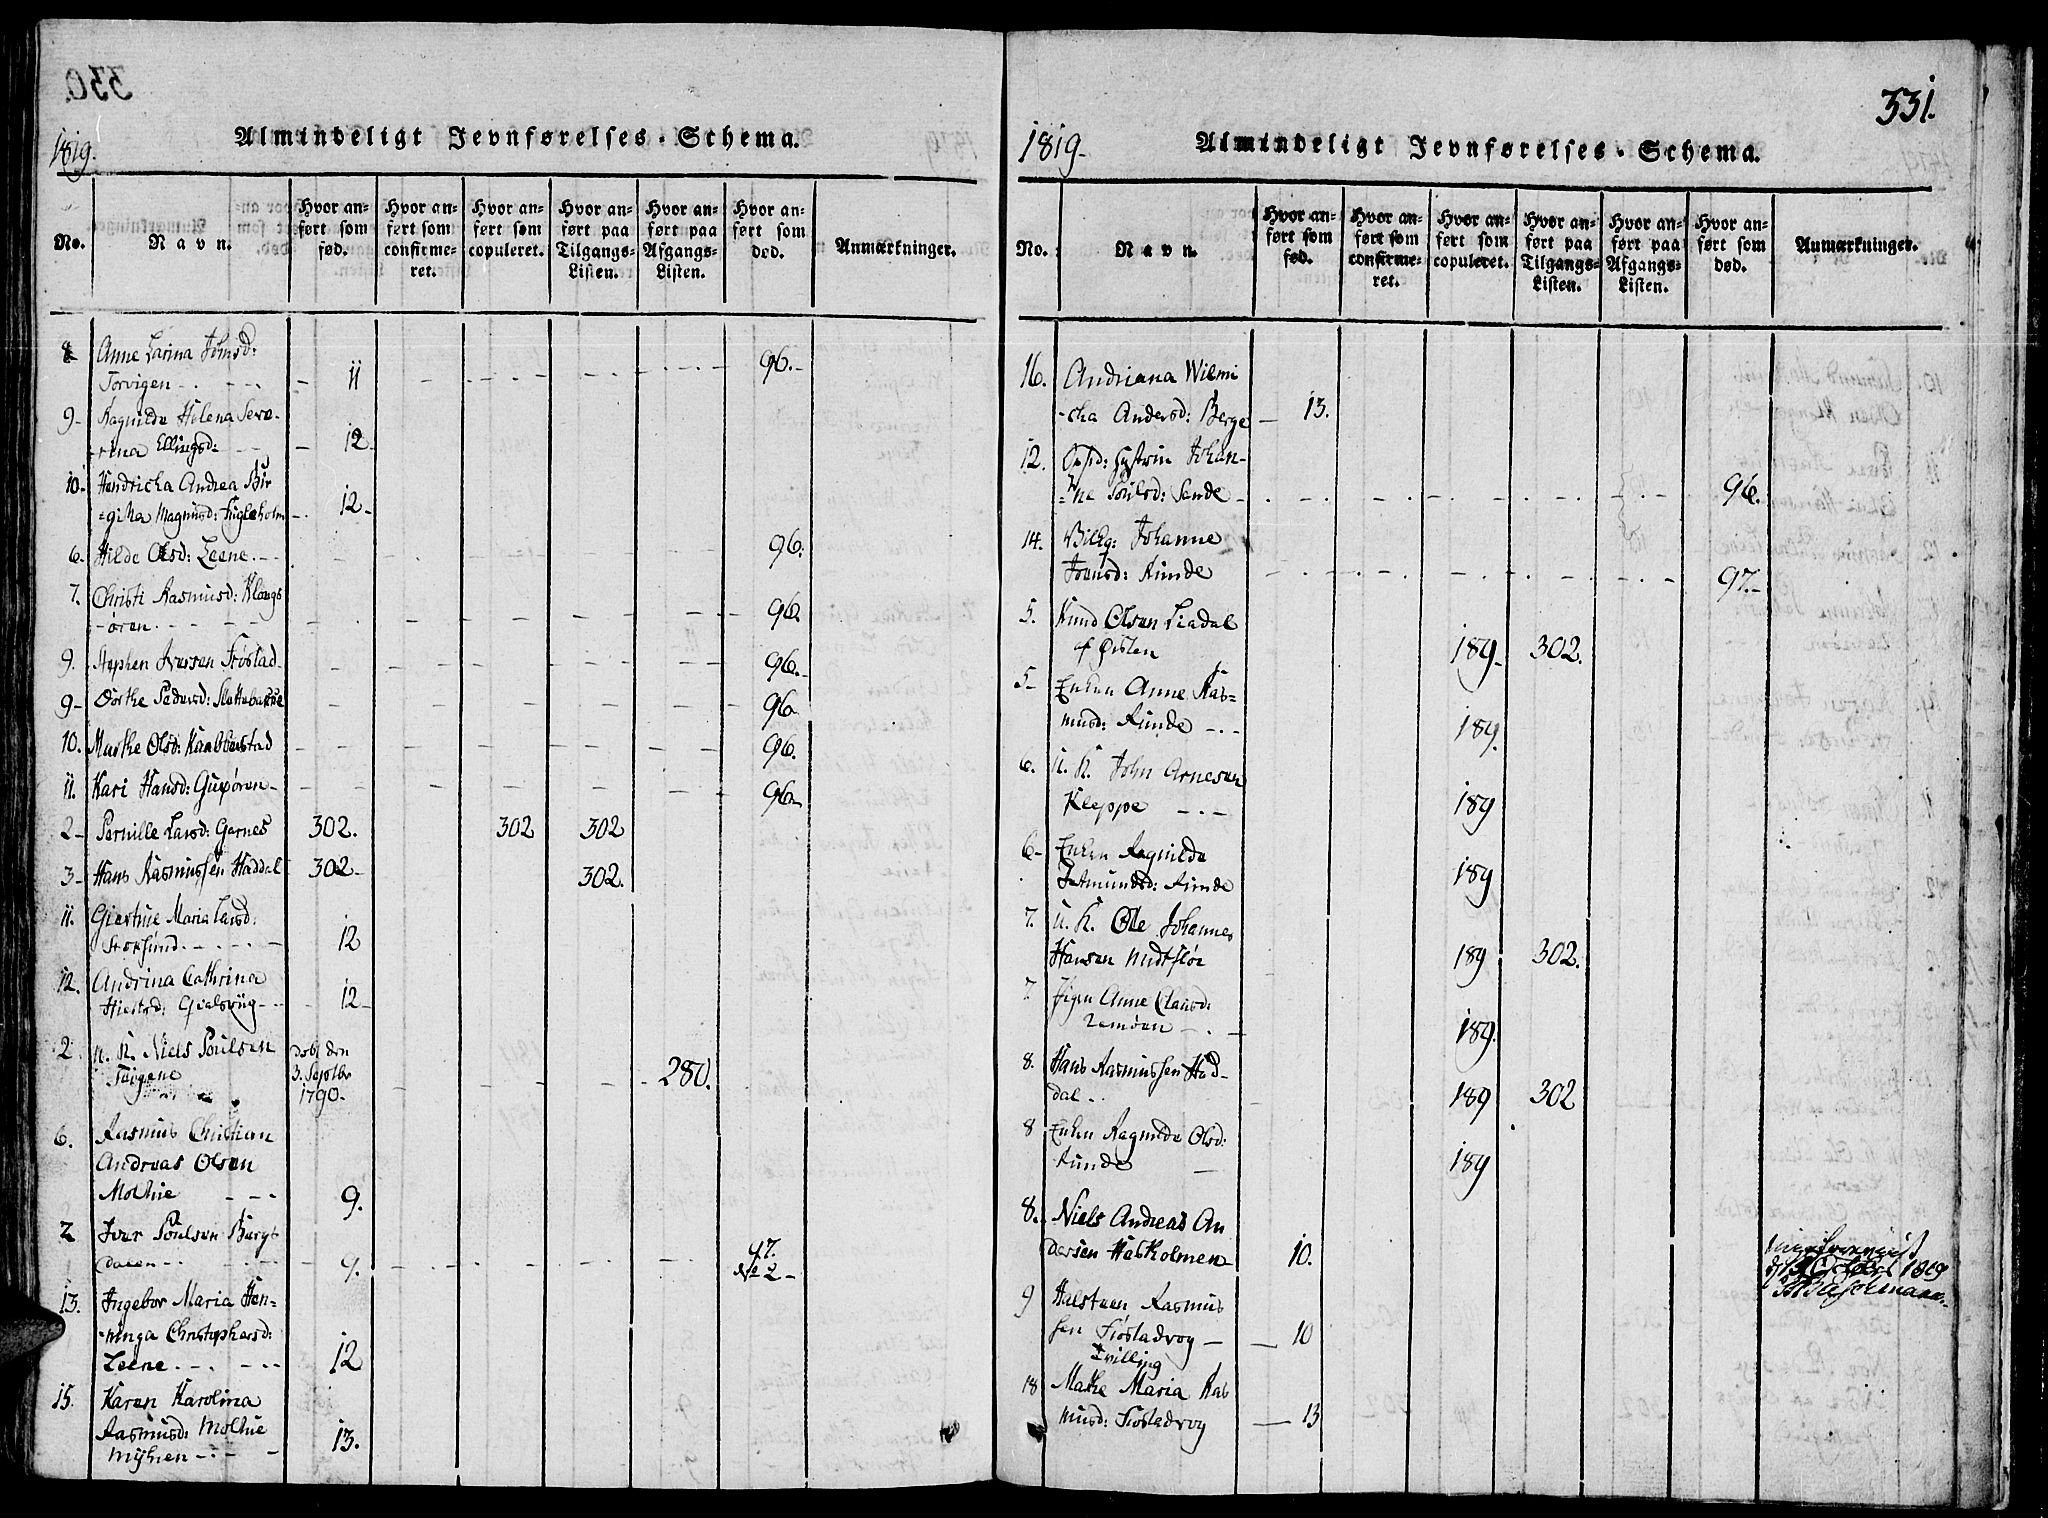 330.
1819.
Almindeligt Jevnførelses-Schema.
No.
Navn.
Hvor anført som fød.
Hvor anført som confirmeret.
Hvor anført som copuleret.
Hvor anført paa Tilgangs-Listen.
Hvor anført paa Afgangs-Listen.
Hvor anført som død.
Anmærkninger.
8 Anne Larina Johnsd: 96.
Torvigen 11
9 Ragnilde Helena Seve-
rina Ellingsd: 12
10 Hendricha Andrea Bir
=gitta Magnusd: Fugleholm 12
6. Hilde Olsd: Leene. 96.
7. Christi Rasmusd: Klongs
øren 96.
9. Stephen Iversen Frøstad 96.
9 Dorthe Pedersd: Slottebakke 96
10. Marthe Olsd: Kaabberstad 96.
11. Kari Hansd: Gurøren 96
2 Pernille Larsd: Garnes 302. 302 302
3 Hans Rasmussen Haddal 302. 302.
11. Giertrue Maria Larsd:
Storsund 12
12. Andrina Cathrina
12
2 u. K. Niels Poulsen Døbt den
3. Septbr 280.
1790.
6. Rasmus Christian
Andreas Olsen
Moltue 9.
2 Iver Poulsen Burgs
dalen 9. 47.
No 2
13. Ingebor Maria Hen=
ninga Christophersd:
Leene 12
15. Karen Karolina
Rasmusd: Moltue
Myhren 13.
331.
1819.
Almindeligt Jevnførelses-Schema.
No.
Navn.
Hvor anført som fød.
Hvor anført som confirmeret.
Hvor anført som copuleret.
Hvor anført paa Tilgangs-Listen.
Hvor anført paa Afgangs-Listen.
Hvor anført som død.
Anmærkninger.
16. Andriana Wilmi
cha Andersd: Berge 13.
12. Johan-
ne Poulsd: Sande 96.
14. Johanne
Joensd: Runde 97.
5. Knud Olsen Liadal
af Ørsten 189 302.
5 Enken Anne Ras=
musd: Runde 189.
6. u. K. John Arnesen
Kleppe 189
6 Enken Ragnilde
Jetmundsd: Runde 189
7. u. K. Ole Johannes
Hansen Midtflør 189 302.
7. Pigen Anne Clausd:
Remøen 189.
8. Hans Rasmussen Had
dal 189 302
8 Enken Ragnilde Olsd:
Runde 189
8. Niels Andreas An
dersen Hatholmen 10.
October 1819
9 Halsteen Rasmus
sen Fiøstadvog 10
Tvilling
18 Mathe Maria Ras
musd: Fiøstadvog 13